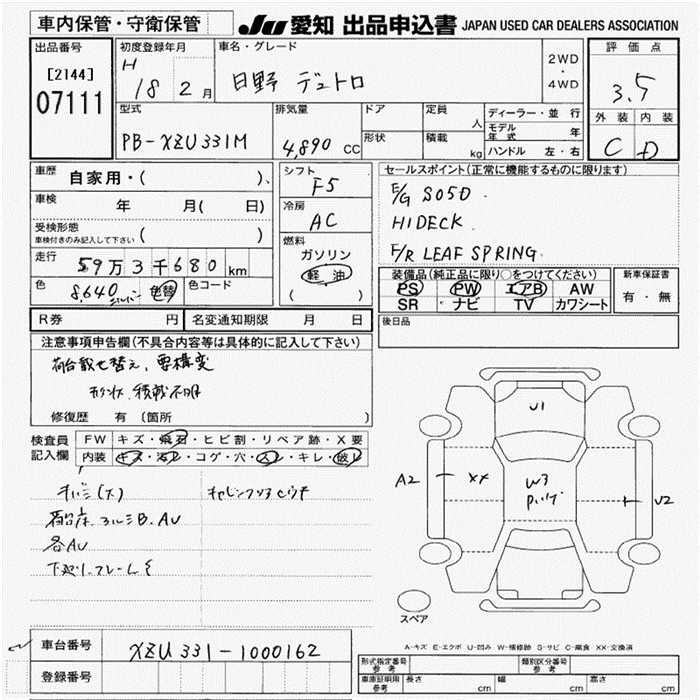 車内保管・守衛保管
JU 愛知 出品申込書 JAPAN USED CAR DEALERS ASSOCIATION
出品番号
[2144]
07111
初度登録年月
H 18 2 月
車名・グレード
日野 デュトロ
2WD
・
4WD
評価点
3.5
外装 内装
C D
型式
PB-XZU331M
排気量
4,890 CC
ドア
形状
定員 人
積載 kg
ディーラー・並行
モデル年式 年
ハンドル 左・右
車歴 自家用・( )、
車検 年 月( 日)
受検形態 ( )
車検付きのみ記入して下さい
走行 59万3千680 km
色 8,640 色替 色コード
シフト
F5
冷房
AC
燃料
ガソリン
軽油
( )
セールスポイント(正常に機能するものに限ります)
E/G S05D.
HIDECK.
F/R LEAF SPRING.
装備品(純正品に限り○をつけてください)
PS PW エアB AW
SR ナビ TV カワシート
新車保証書
有・無
R券 円 名変通知期限 月 日
後日品
注意事項申告欄(不具合内容等は具体的に記入して下さい)
荷台載せ替え、要構変
積載不明
修復歴 有 (箇所 )
検査員記入欄
FW キズ・飛石・ヒビ割・リペア跡・X要
内装 キズ・汚レ・コゲ・穴・スレ・キレ・破レ
荷台床 アルミB.AU
各AU
下廻リ.フレームS
U1
A2
XX
W3
U2
スペア
A-キズ E-エクボ U-凹み W-補修跡 S-サビ C-腐食 XX-交換済
車台番号 XZU331-1000162
登録番号
型式指定番号 参考 類別区分番号 参考
車庫証明用 参考 長さ cm 幅 cm 高さ cm